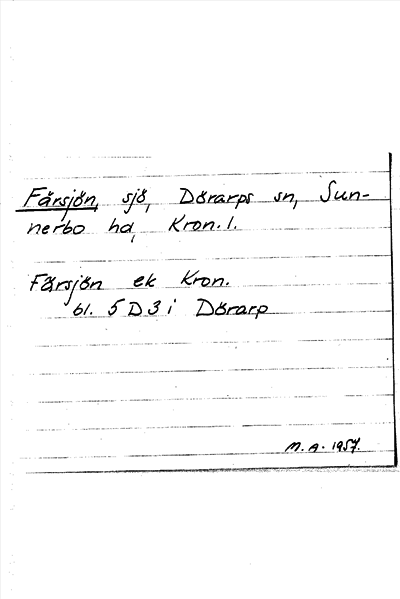 Färsjön, sjö, Dörarps sn, Sun-
nerbo hd, Kron. l.
Färsjön ek Kron.
bl. 5 D 3 i Dörarp
M. A. 1957.